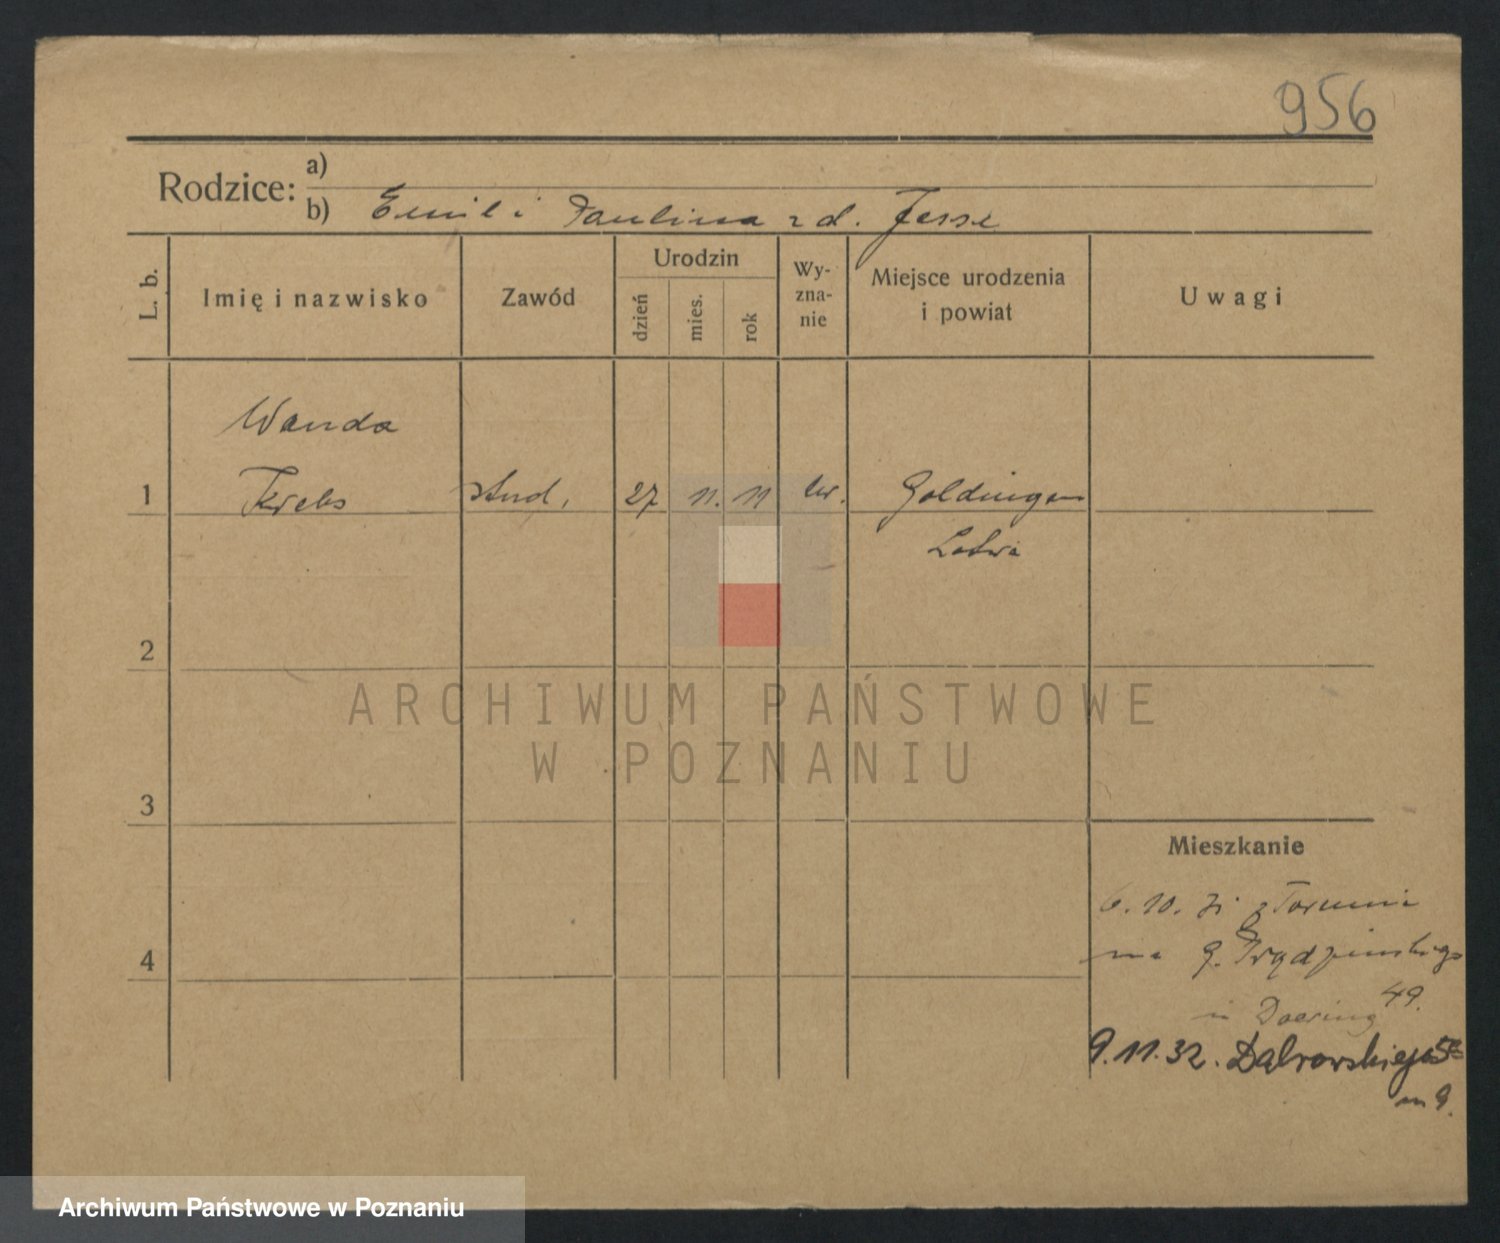 956
Rodzice: a)
b) Emil i Paulina z d. Jesse
L. b.
Imię i nazwisko
Zawód
Urodzin
dzień
mies.
rok
Wy-
zna-
nie
Miejsce urodzenia
i powiat
Uwagi
Wanda
1 Krebs stud. 27 11. 11 ew. Goldingen
Łotwa
2
ARCHIWUM PAŃSTWOWE
W POZNANIU
3
Mieszkanie
6. 10. 31 z Torunia
na G. Prądzyńskiego
49.
u Doering
4
9.11.32. Dąbrowskiego 58
m 9.
Archiwum Państwowe w Poznaniu